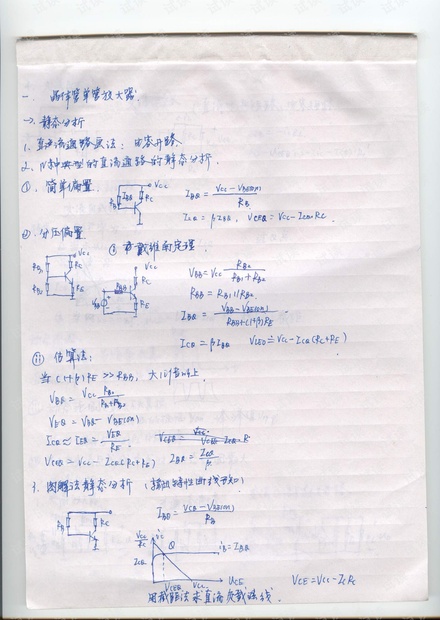 一、晶体管单管放大器
→、静态分析
1、直流通路画法：电容开路
2、几种典型的直流通路的静态分析.
①. 简单偏置
RB IBQ RC VCC
IBQ = (VCC - VBE(on)) / RB
ICQ = βIBQ, VCEQ = VCC - ICQRC
②. 分压偏置
① 用戴维南定理
VBB = VCC RB2 / (RB1 + RB2)
RBB = RB1 // RB2
IBQ = (VBB - VBE(on)) / (RBB + (1+β)RE)
ICQ = βIBQ VCEQ ≐ VCC - ICQ(RC+RE)
(ii) 估算法:
当 (1+β)RE >> RBB, 大10倍以上
VBQ = VCC RB2 / (RB1+RB2)
VEQ = VBQ - VBE(on)
ICQ ≈ IEQ = VEQ / RE
VCEQ = VCC - ICQ(RC+RE) IBQ = ICQ / β
3. 图解法静态分析 (输出特性曲线已知)
RB RC
IBQ = (VCC - VBE(on)) / RB
VCC/RC Q iB = IBQ
ICQ
VCEQ VCC VCE VCE = VCC - ICRC
用截距法求直流负载线.